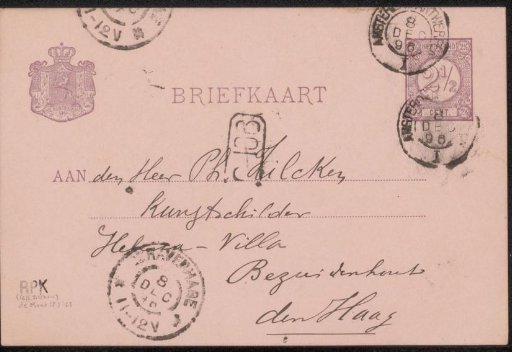 11-12V
AMSTERDAM
8
DEC
96
1
2½
CENT
AMSTERDAM
8
DEC
96
1
BRIEFKAART
AAN den Heer Ph. Zilcken
Kunstschilder
Helena-Villa
Bezuidenhout
den Haag
'S GRAVENHAGE
8
DEC
11-12V
RPK